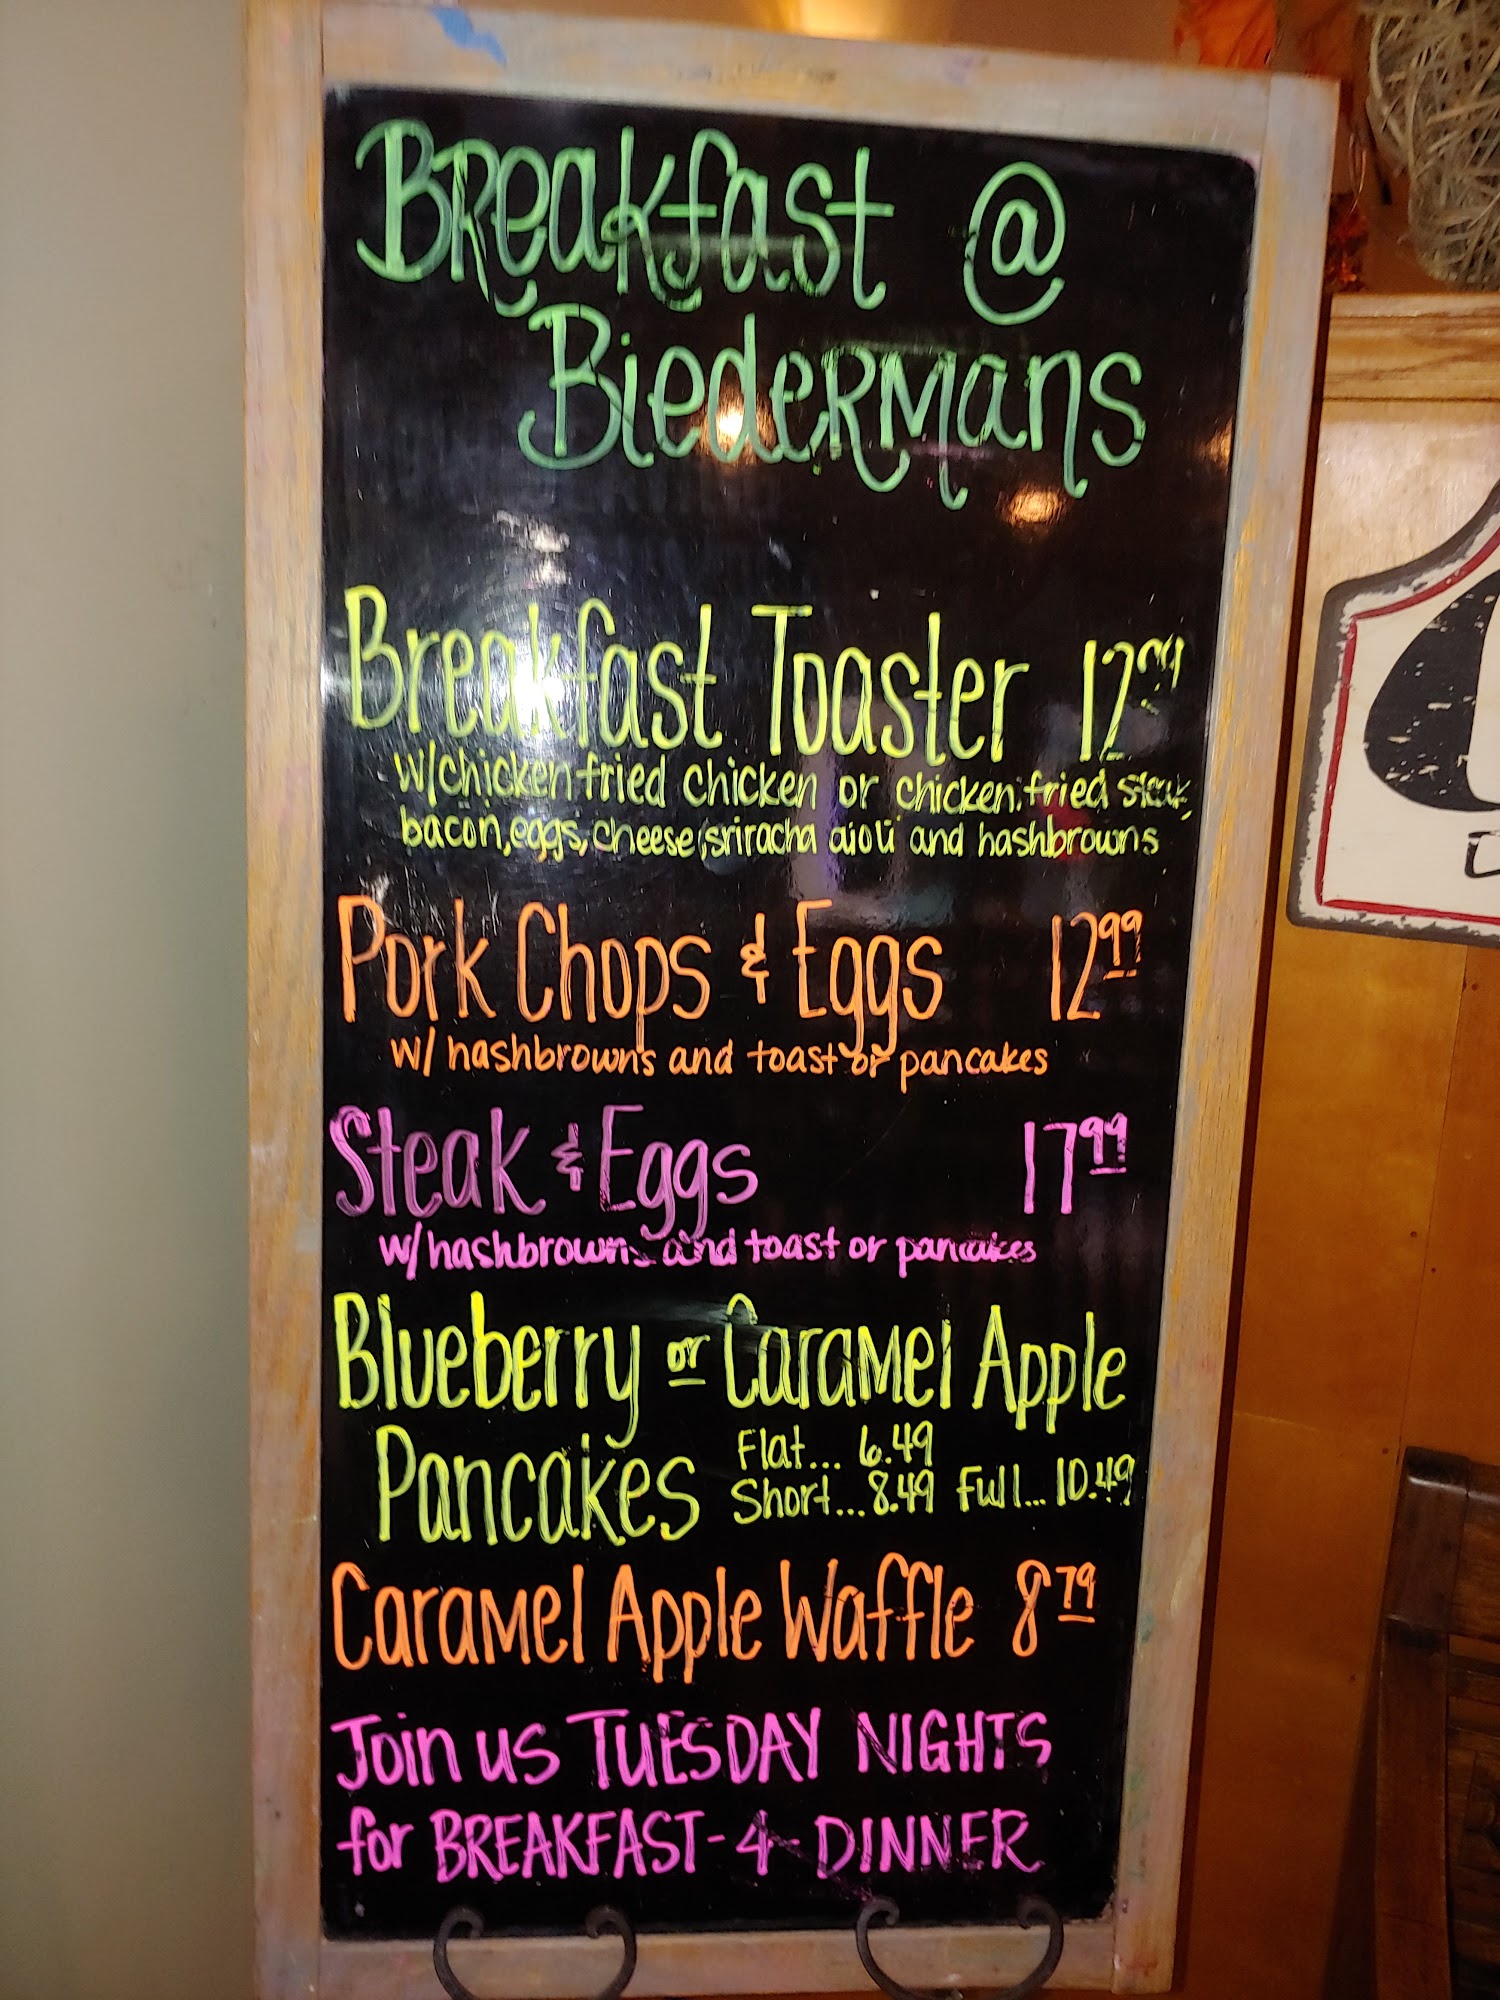 Breakfast @
Biedermans
Breakfast Toaster 12.99
w/chicken fried chicken or chicken fried steak,
bacon, eggs, cheese, sriracha aioli and hashbrowns
Pork Chops & Eggs 12.99
w/ hashbrowns and toast or pancakes
Steak & Eggs 17.99
w/ hashbrowns and toast or pancakes
Blueberry or Caramel Apple
Pancakes Flat... 6.49
Short... 8.49 Full... 10.49
Caramel Apple Waffle 8.79
Join us TUESDAY NIGHTS
for BREAKFAST-4-DINNER